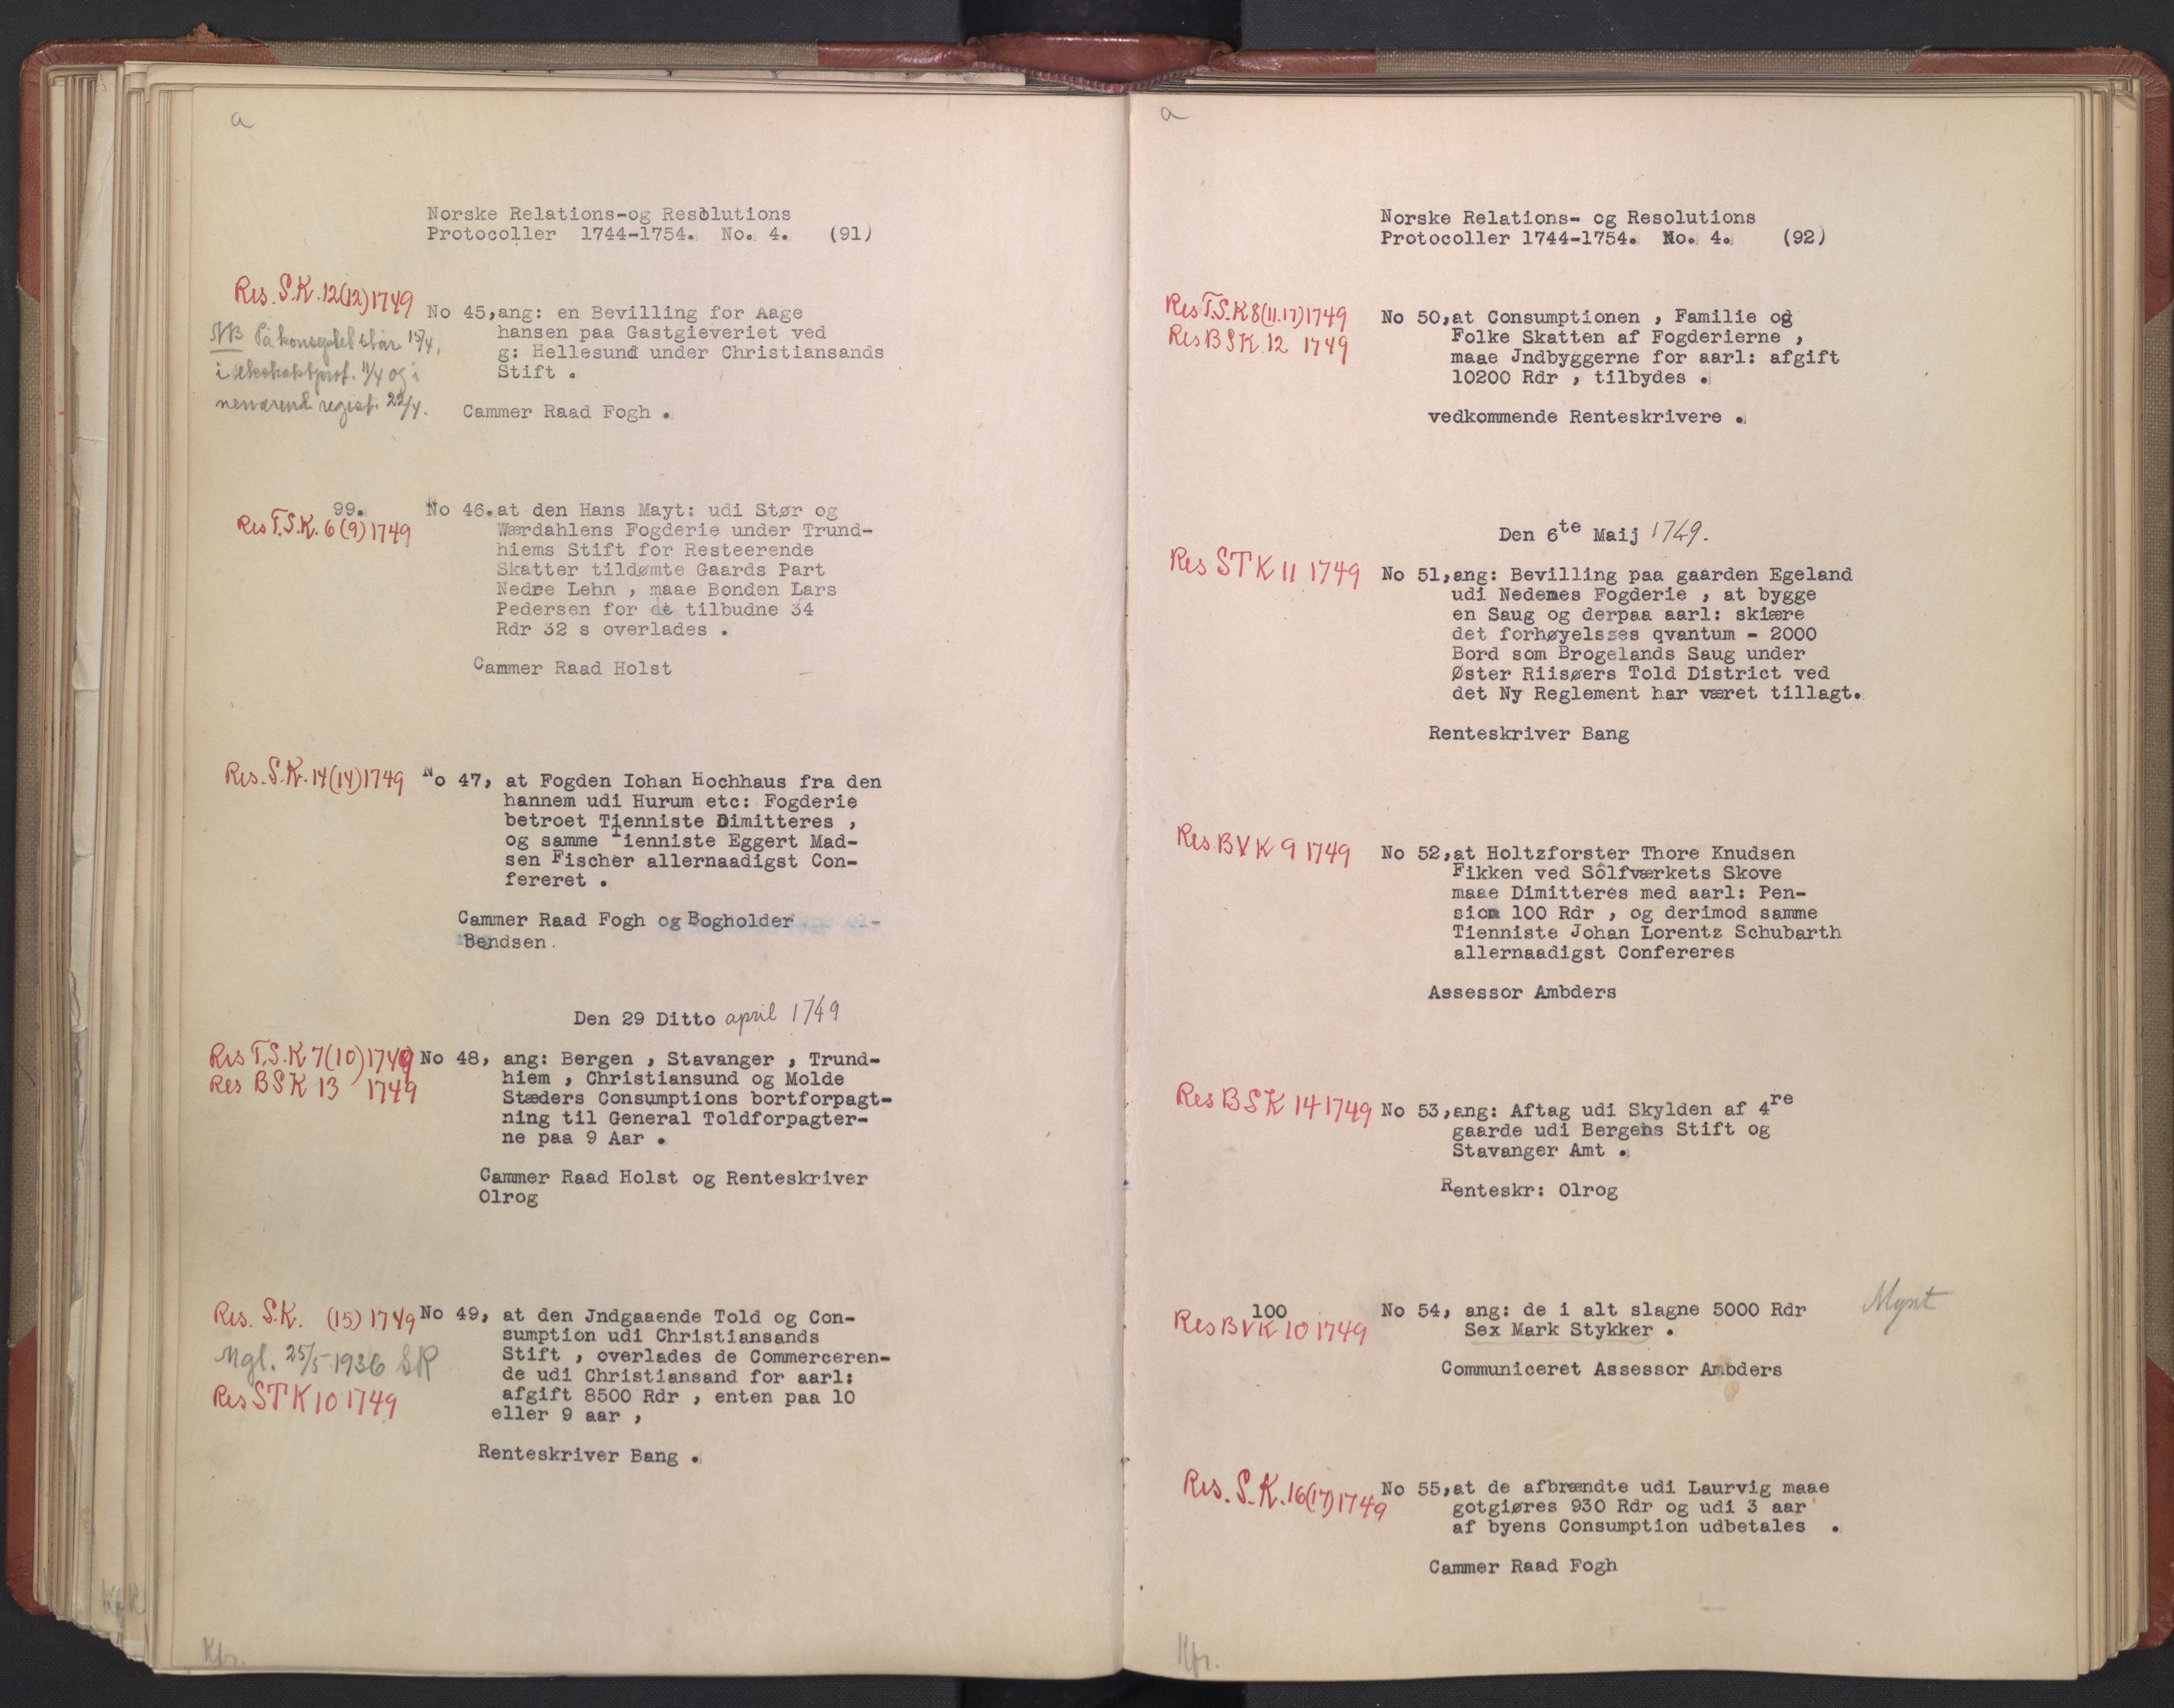 a
Norske Relations-og Resolutions
Protocoller 1744-1754. No. 4. (91)
Res. S.K. 12(12)1749
NB På konseptet står 15/4,
i ekstraktprot. 11/4 og i
nærværende regist. 22/4.
No 45,ang: en Bevilling for Aage
hansen paa Gastgieveriet ved
g: Hellesund under Christiansands
Stift .
Cammer Raad Fogh .
99.
Res T.S.K. 6(9)1749
No 46.at den Hans Mayt: udi Stør og
Wærdahlens Fogderie under Trund-
hiems Stift for Resteerende
Skatter tildømte Gaards Part
Nedre Lehn , maae Bonden Lars
Pedersen for de tilbudne 34
Rdr 32 s overlades .
Cammer Raad Holst
Res. S.K. 14(14)1749
No 47, at Fogden Iohan Hochhaus fra den
hannem udi Hurum etc: Fogderie
betroet Tienniste Dimitteres ,
og samme Tienniste Eggert Mad-
sen Fischer allernaadigst Con-
fereret .
Cammer Raad Fogh og Bogholder
Bendsen.
Den 29 Ditto april 1749
Res T.S.K 7(10)1749
Res BSK 13 1749
No 48, ang: Bergen , Stavanger , Trund-
hiem , Christiansund og Molde
Stæders Consumptions bortforpagt-
ning til General Toldforpagter-
ne paa 9 Aar .
Cammer Raad Holst og Renteskriver
Olrog
Res. S.K. (15) 1749
Mgl. 25/5-1936 SR
Res STK 10 1749
No 49, at den Jndgaaende Told og Con-
sumption udi Christiansands
Stift , overlades de Commerceren-
de udi Christiansand for aarl:
afgift 8500 Rdr , enten paa 10
eller 9 aar ,
Renteskriver Bang .
Kfr.
a
Norske Relations- og Resolutions
Protocoller 1744-1754. No. 4. (92)
Res T.S.K 8(11.17)1749
Res BSK. 12 1749
No 50,at Consumptionen , Familie og
Folke Skatten af Fogderierne ,
maae Jndbyggerne for aarl: afgift
10200 Rdr , tilbydes .
vedkommende Renteskrivere .
Den 6te Maij 1749.
Res STK 11 1749
No 51,ang: Bevilling paa gaarden Egeland
udi Nedenes Fogderie , at bygge
en Saug og derpaa aarl: skiære
det forhøyelsses qvantum - 2000
Bord som Brogelands Saug under
Øster Riisøers Told District ved
det Ny Reglement har været tillagt.
Renteskriver Bang
Res. BVK 9 1749
No 52,at Holtzforster Thore Knudsen
Fikken ved Sôlfværkets Skove
maae Dimitteres med aarl: Pen-
sion 100 Rdr , og derimod samme
Tienniste Johan Lorentz Schubarth
allernaadigst Confereres
Assessor Ambders
Res BSK 14 1749
No 53,ang: Aftag udi Skylden af 4re
gaarde udi Bergens Stift og
Stavanger Amt .
Renteskr: Olrog
100
Res BVK 10 1749
No 54, ang: de i alt slagne 5000 Rdr
Sex Mark Stykker .
Mynt
Communiceret Assessor Ambders
Res. S.K. 16(17)1749
No 55,at de afbrændte udi Laurvig maae
gotgiøres 930 Rdr og udi 3 aar
af byens Consumption udbetales .
Cammer Raad Fogh
Kfr.